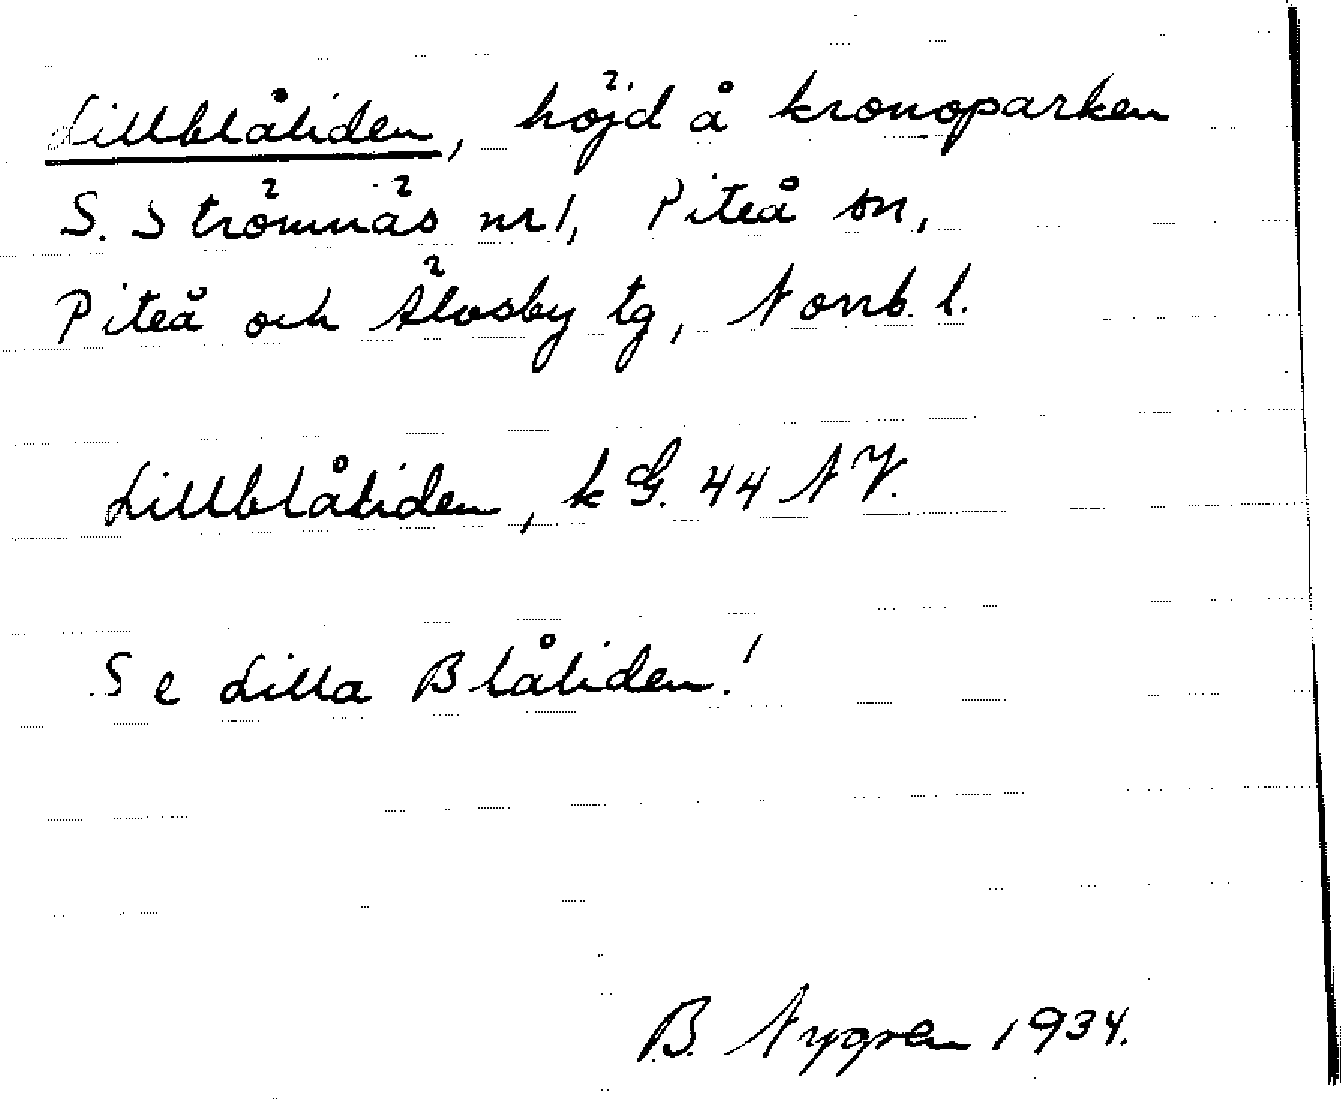 Lillblåtiden, höjd å kronoparken
S. Strömnäs nr 1, Piteå sn,
Piteå och Älvsby tg, Norrb. l.
Lillblåtiden, k G. 44 NV.
Se Lilla Blåtiden!
B. Nygren 1934.